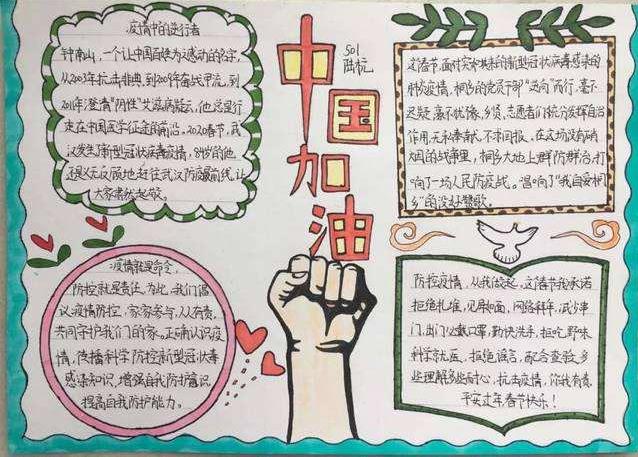 疫情中的逆行者
钟南山,一个让中国百姓为之感动的名字,
从2003年抗击非典,到2009年奋战甲流,到
2016年澄清"阴性"艾滋病疑云,他总是行
走在中国医学征途的前沿。2020春节,武
汉发生了新型冠状病毒疫情,84岁的他
还义无反顾地赶往武汉防疫最前线,让
大家肃然起敬。
中国加油
501
这春节,面对突如其来的新型冠状病毒感染的
肺炎疫情,桐乡的党员干部"逆向"而行,毫不
迟疑,毫不犹豫,乡贤,志愿者们充分发挥自治
作用,无私奉献,不求回报。在这场没有硝
烟的战争里,桐乡大地上群防群治,打
响了一场人民防疫战。唱响了"我自爱桐
乡"的没好赞歌。
疫情就是命令,
防控就是责任,为此,我们倡
议:疫情防控,家家参与,人人有责,
共同守护我们的家。正确认识疫
情,传播科学防控新型冠状毒
感染知识,增强自我防护意识
提高自我防护能力。
防控疫情,从我做起,这春节我承诺
拒绝扎堆,见屏如面,网络拜年,减少串
门,出门必戴口罩,勤快洗手,拒吃野味
科学就医,拒绝谣言,配合查验,多
些理解多些耐心,抗击疫情,你我有责,
平安过年,春节快乐!